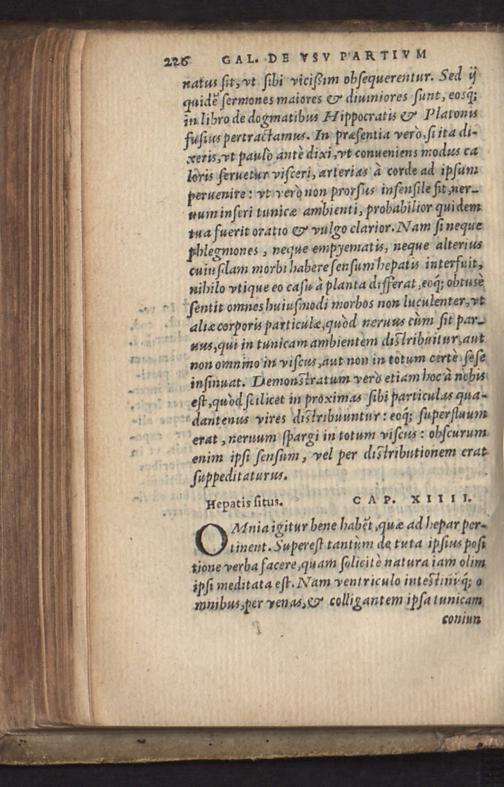 226 GAL. DE VSV PARTIVM
natus sit, vt sibi vicißim obsequerentur. Sed ij
quidẽ sermones maiores & diuiniores sunt, eosq́;
in libro de dogmatibus Hippocratis & Platonis
fusius pertractamus. In præsentia verò, si ita di-
xeris, vt paulò antè dixi, vt conueniens modus ca
loris seruetur visceri, arterias à corde ad ipsum
peruenire: vt verò non prorsus insensile sit, ner-
uum inseri tunicæ ambienti, probabilior quidem
tua fuerit oratio & vulgo clarior. Nam si neque
phlegmones, neque empyematis, neque alterius
cuiusdam morbi habere sensum hepatis interfuit,
nihilo vtique eo casu à planta differat, eoq́; obtuse
sentit omnes huiusmodi morbos non luculenter, vt
aliæ corporis particulæ, quòd neruus cùm sit par-
uus, qui in tunicam ambientem distribuitur, aut
non omnino in viscus, aut non in totum certè sese
insinuat. Demonstratum verò etiam hoc à nobis
est, quòd scilicet in proximas sibi particulas qua-
dantenus vires distribuuntur: eoq́; superfluum
erat, neruum spargi in totum viscus: obscurum
enim ipsi sensum, vel per distributionem erat
suppeditaturus.
Hepatis situs. CAP. XIIII.
OMnia igitur bene habẽt, quæ ad hepar per-
tinent. Superest tantùm de tuta ipsius posi
tione verba facere, quam solicitè natura iam olim
ipsi meditata est. Nam ventriculo intestinisq́; o
mnibus, per venas, & colligantem ipsa tunicam
coniun